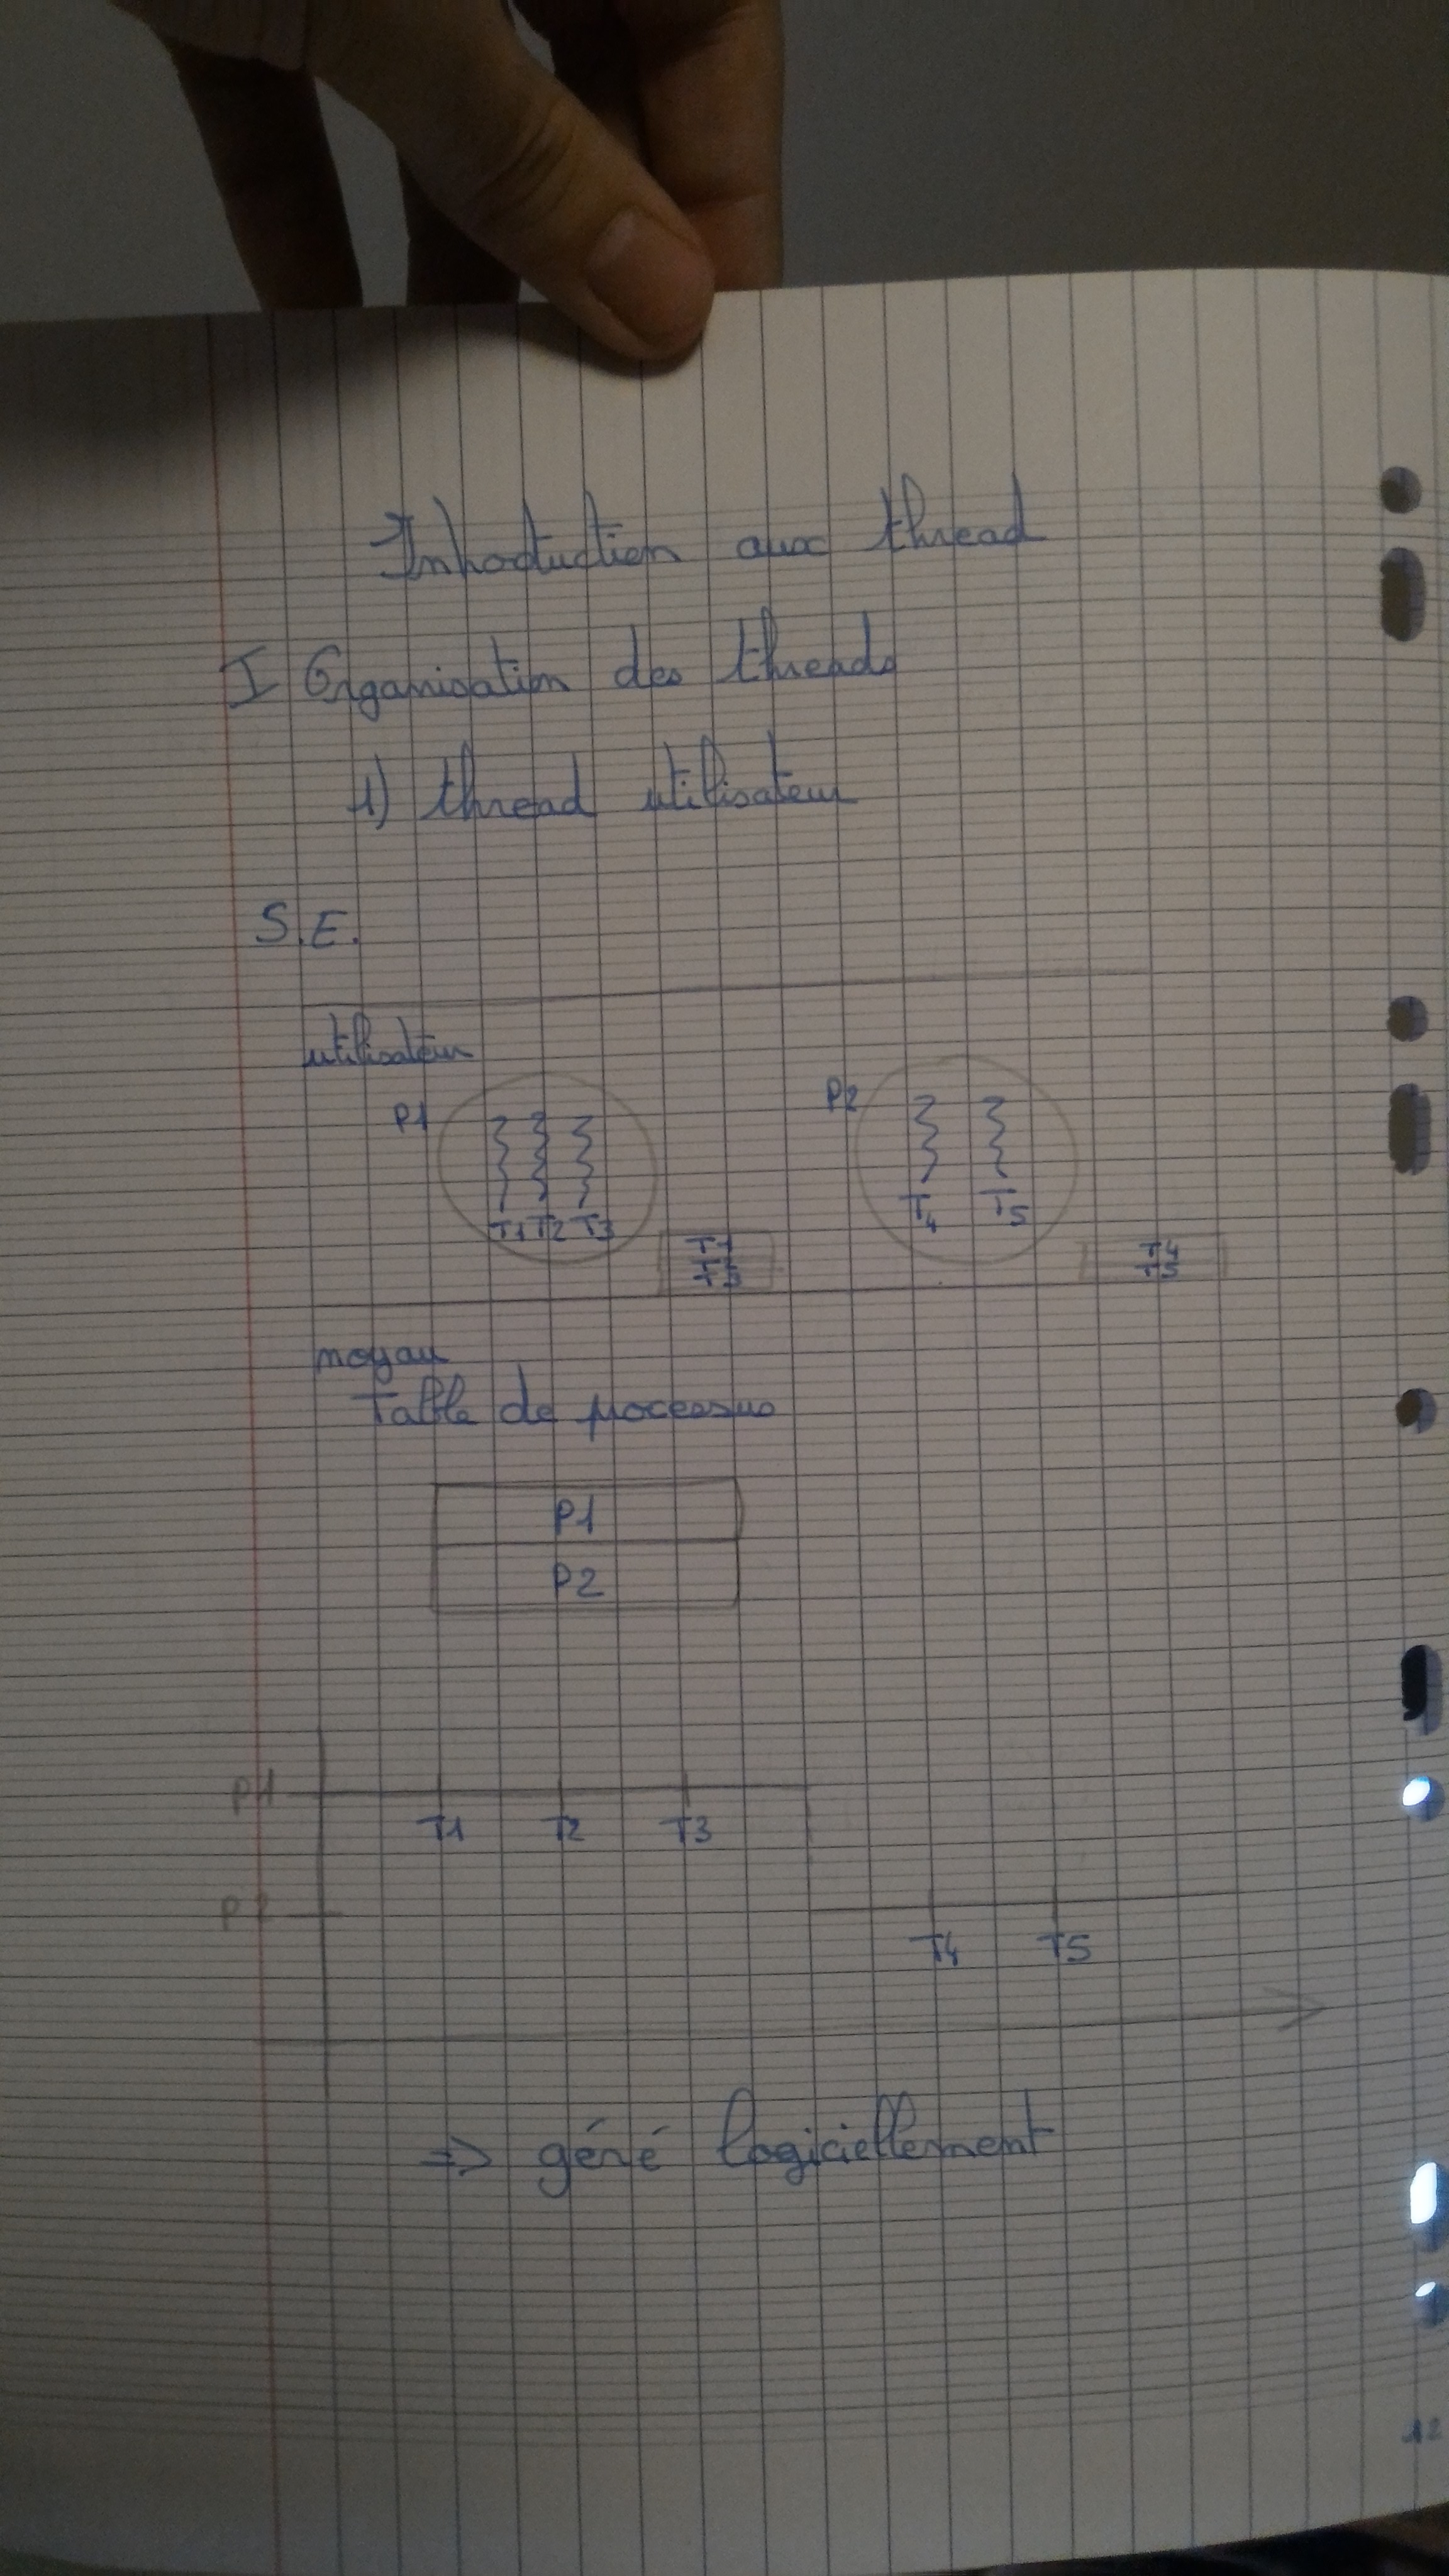 Introduction aux thread
I Organisation des threads
1) thread utilisateur
S.E.
utilisateur
P1
P2
T1 T2 T3
T4 T5
T1
T4
T5
noyau
Table de processus
P1
P2
P1
T1 T2 T3
P2
T4 T5
=> géré logiciellement
12